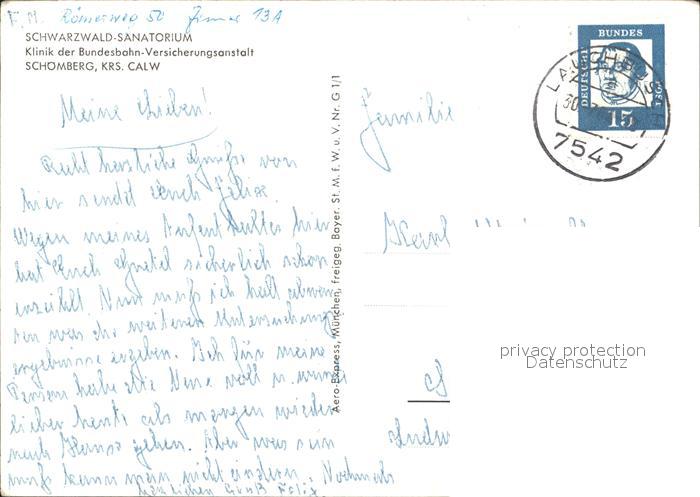 F. M. Römerweg 50 Zimmer 13A
SCHWARZWALD-SANATORIUM
Klinik der Bundesbahn-Versicherungsanstalt
SCHÖMBERG, KRS. CALW
Meine Lieben!
Recht herzliche Grüße von
hier sendet Euch Felix.
Wegen meines Aufenthaltes hier
hat Euch Gretel sicherlich schon
erzählt. Nun muß ich halt abwar-
ten was die weiteren Untersuchungs
ergebnisse ergeben. Ich für meine
Person habe die Nase voll u. würde
lieber heute als morgen wieder
nach Hause gehen. Aber was sein
muß kann man nicht ändern. Nochmals
herzlichen Gruß Felix
Aero-Express, München, freigeg. Bayer. St. M. f. W. u. V. Nr. G 1/1
Familie
Karl
DEUTSCHE
BUNDES
POST
15
7542
privacy protection
Datenschutz